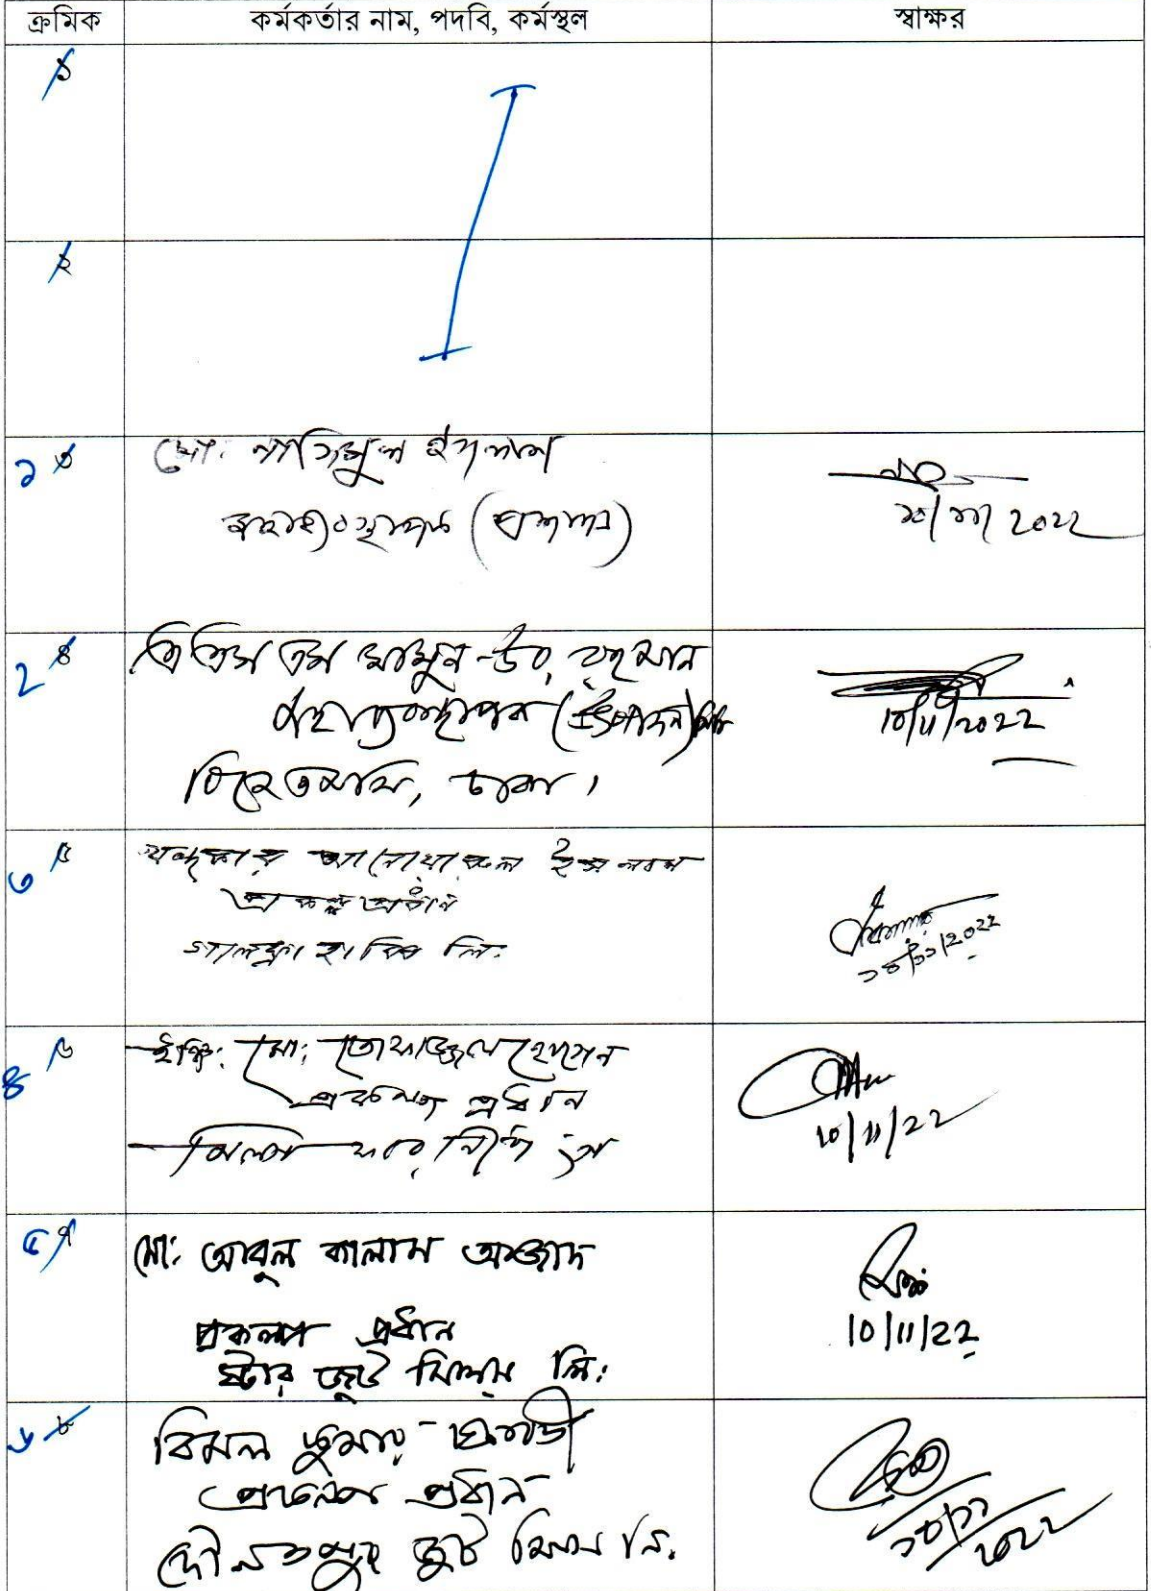 ক্রমিক কর্মকর্তার নাম, পদবি, কর্মস্থল স্বাক্ষর
১
২
১ ৩ মো: নাজিমুল ইসলাম
মহাব্যবস্থাপক (প্রশাসন)
১০/১১/২০২২
২ ৪ মামুন-উর রহমান
মহাব্যবস্থাপক (উৎপাদন)
বিজেএমসি, ঢাকা।
10/11/2022
৩ ৫ খন্দকার আনোয়ারুল ইসলাম
প্রকল্প প্রধান
গালফ্রা হাবিব লি:
১০/১১/২০২২
৪ ৬ ইঞ্জি: মো: তোফাজ্জল হোসেন
প্রকল্প প্রধান
মিলস
10/11/22
৫ ৭ মো: আবুল কালাম আজাদ
প্রকল্প প্রধান
ষ্টার জুট মিলস লি:
10/11/22
৬ ৮ বিমল কুমার
প্রকল্প প্রধান
দৌলতপুর জুট মিলস লি.
১০/১১/২০২২